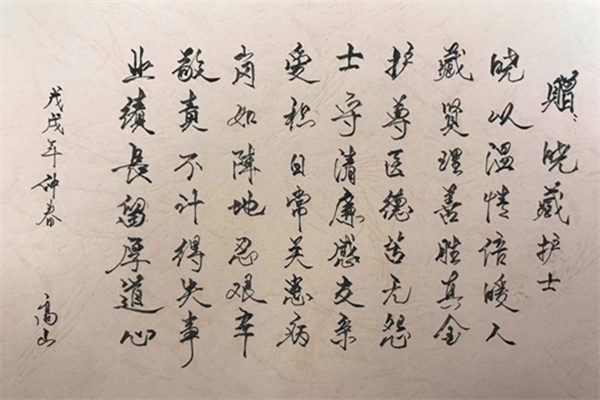 赠晓藏护士
晓以温情倍暖人
藏贤理善胜真金
护尊医德苦无怨
士守清廉感友亲
爱积日常关患病
岗如陣地忍艰辛
敬责不计得失事
业绩長留厚道心
戊戌年仲春
高山